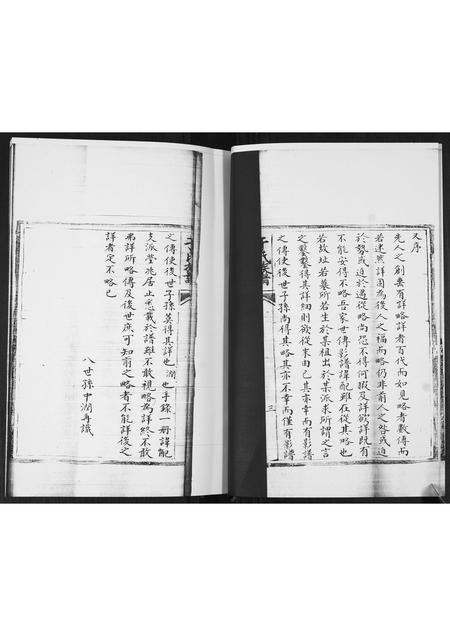 又序
先人之創垂有詳略詳者百代而如見略者數傳而
若迷然詳固為後人之福而略仍非前人之咎或迫
於勢或迫於遇從略尚恐不得何暇及詳欲詳既有
不能安得不略吾家世傳影譜諱配雖在從其略也
若故址若墓所若生於某祖出於某派求所謂之言
之鑿鑿得其詳細則欲從末由已其亦幸而有影譜
之傳使後世子孫尚得其略其亦不幸而僅有影譜
三
之傳使後世子孫莫得其詳也潤也手錄一冊諱配
支派塋兆居止悉載於譜雖不敢視略為詳終不敢
弗詳所略傳及後世庶可知前之略者不能詳後之
詳者定不略已
八世孫中潤再識